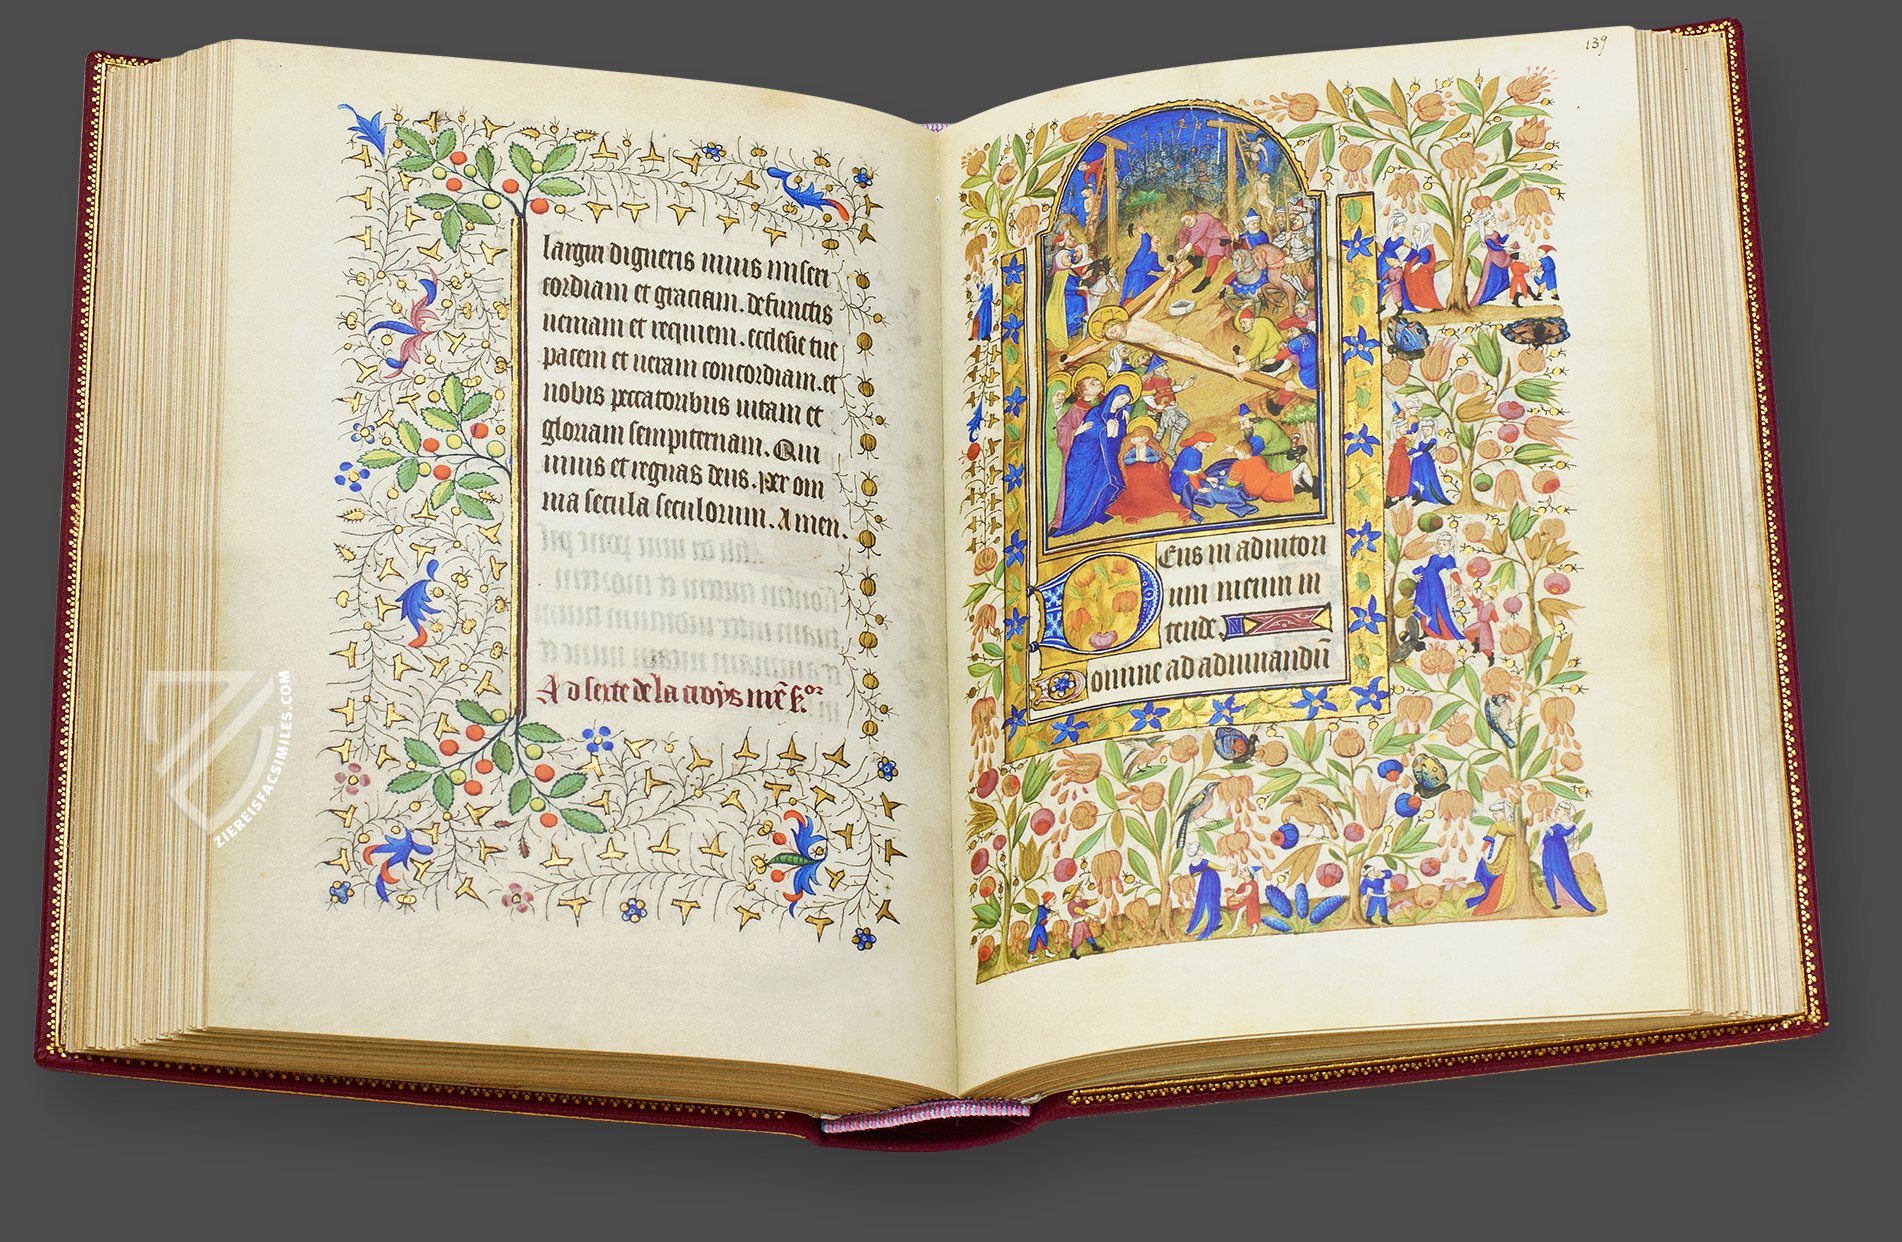 largiri digneris uiuis miseri
cordiam et graciam. defunctis
ueniam et requiem. ecclesie tue
pacem et ueram concordiam. et
nobis peccatoribus uitam et
gloriam sempiternam. Qui
uiuis et regnas deus. per om
nia secula seculorum. Amen.
Ad sexte de la croys
139
Deus in adiutori
um meum in
tende.
Domine ad adiuuandū
ZIEREISFACSIMILES.COM